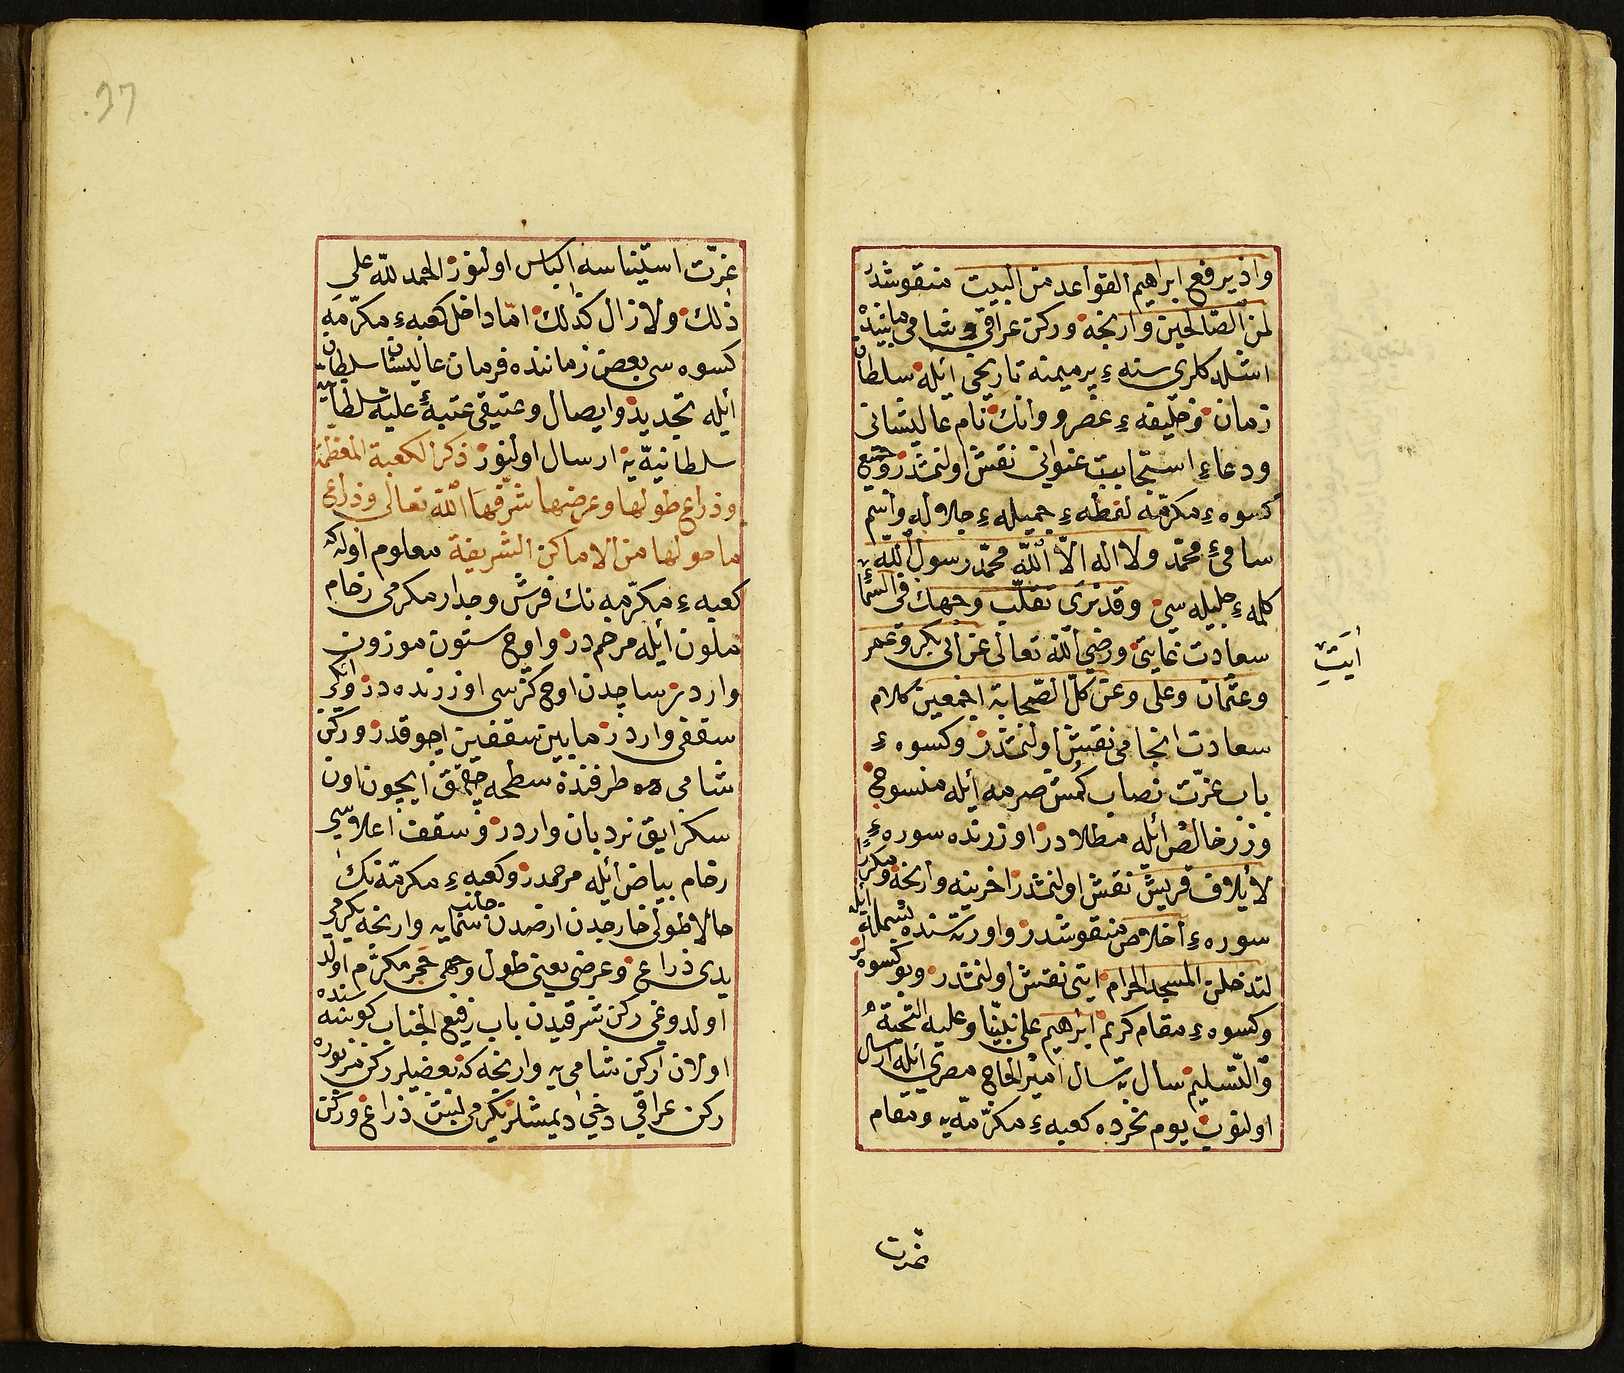 واذ يرفع ابراهيم القواعد من البيت منقوشدر
لمن الصّالحين وارنجه وركن عراقى و شامى مابيننده
ايله سلطان
زمان وخليفه ء عصر و وانك نام عاليشانى
ودعاء استجابت عنوانى نقش اولنمشدر وجميع
كسوه ء مكرّمه لفظه ء جميله ء جلاله واسم
سامىء محمّد ولا اله الاّ الله محمّد رسول الله
كلمه ء جليله سى وقد نرى تقلّب وجهك فى السّماء
سعادت غايتى ورضى الله تعالى عن ابى بكر وعمر
وعثمان وعلى وعن كلّ الصّحابة اجمعين كلام
سعادت انجامى نقش اولنمشدر وكسوه ء
باب عزّت نصاب كمش صرمه ايله منسوج
وزر خالص ايله مطلادر اوزرنده سوره ء
لايلاف قريش نقش اولنمشدر اخرينه وارنجه ومكرّر
سوره ء اخلاص منقوشدر واورته سنده بسمله ايله
لتدخلن المسجد الحرام ايتى نقش اولنمشدر وبو كسوه لر
وكسوه ء مقام كريم ابرهيم على نبيّنا وعليه التحية
والتّسليم سال به سال امير الحاج مصرى ايله ارسال
اولنوب يوم نحرده كعبه ء مكرّمه يه ومقام
ايت
عزت
عزّت استيناسه الباس اولنور الحمد لله على
ذلك ولازال كذلك امّا داخل كعبه ء مكرّمه
كسوه سى بعض زماننده فرمان عاليشان سلطان
ايله تجديد وايصال وعتيقى عتبهء عليهء
سلطانيّه يه ارسال اولنور ذكر الكعبة المعظمة
وذراع طولها وعرضها شرّفها الله تعالى وذراع
ما حولها من الاماكن الشريفة معلوم اوله كه
كعبه ء مكرّمه نك فرش وجدار مكرمى رخام
ملون ايله مرخمدر واوج ستون موزون
واردر ساجدن اوج كرسى اوزرنده در وايكى
سقفى واردر مابين سقفين اجوقدر وركن
شامى طرفنده سطحه چقمق ايچون اون
سكز ايق نردبان واردر وسقف اعلاسى
رخام بياض ايله مرخمدر وكعبه ء مكرّمه نك
حالا طولى خارجدن ارضدن جانب سمايه وارنجه يكرمى
يدى ذراع وعرضى يعنى طول وجهى حجر مكرّم اولد
اولدوغى ركن شرقيدن باب رفيع الجناب كوشه سنده
اولان ركن شامى يه وارنجه كه بعضيلر ركن مزبوره
ركن عراقى دخى ديمشلر يكرمى بش ذراع وركن